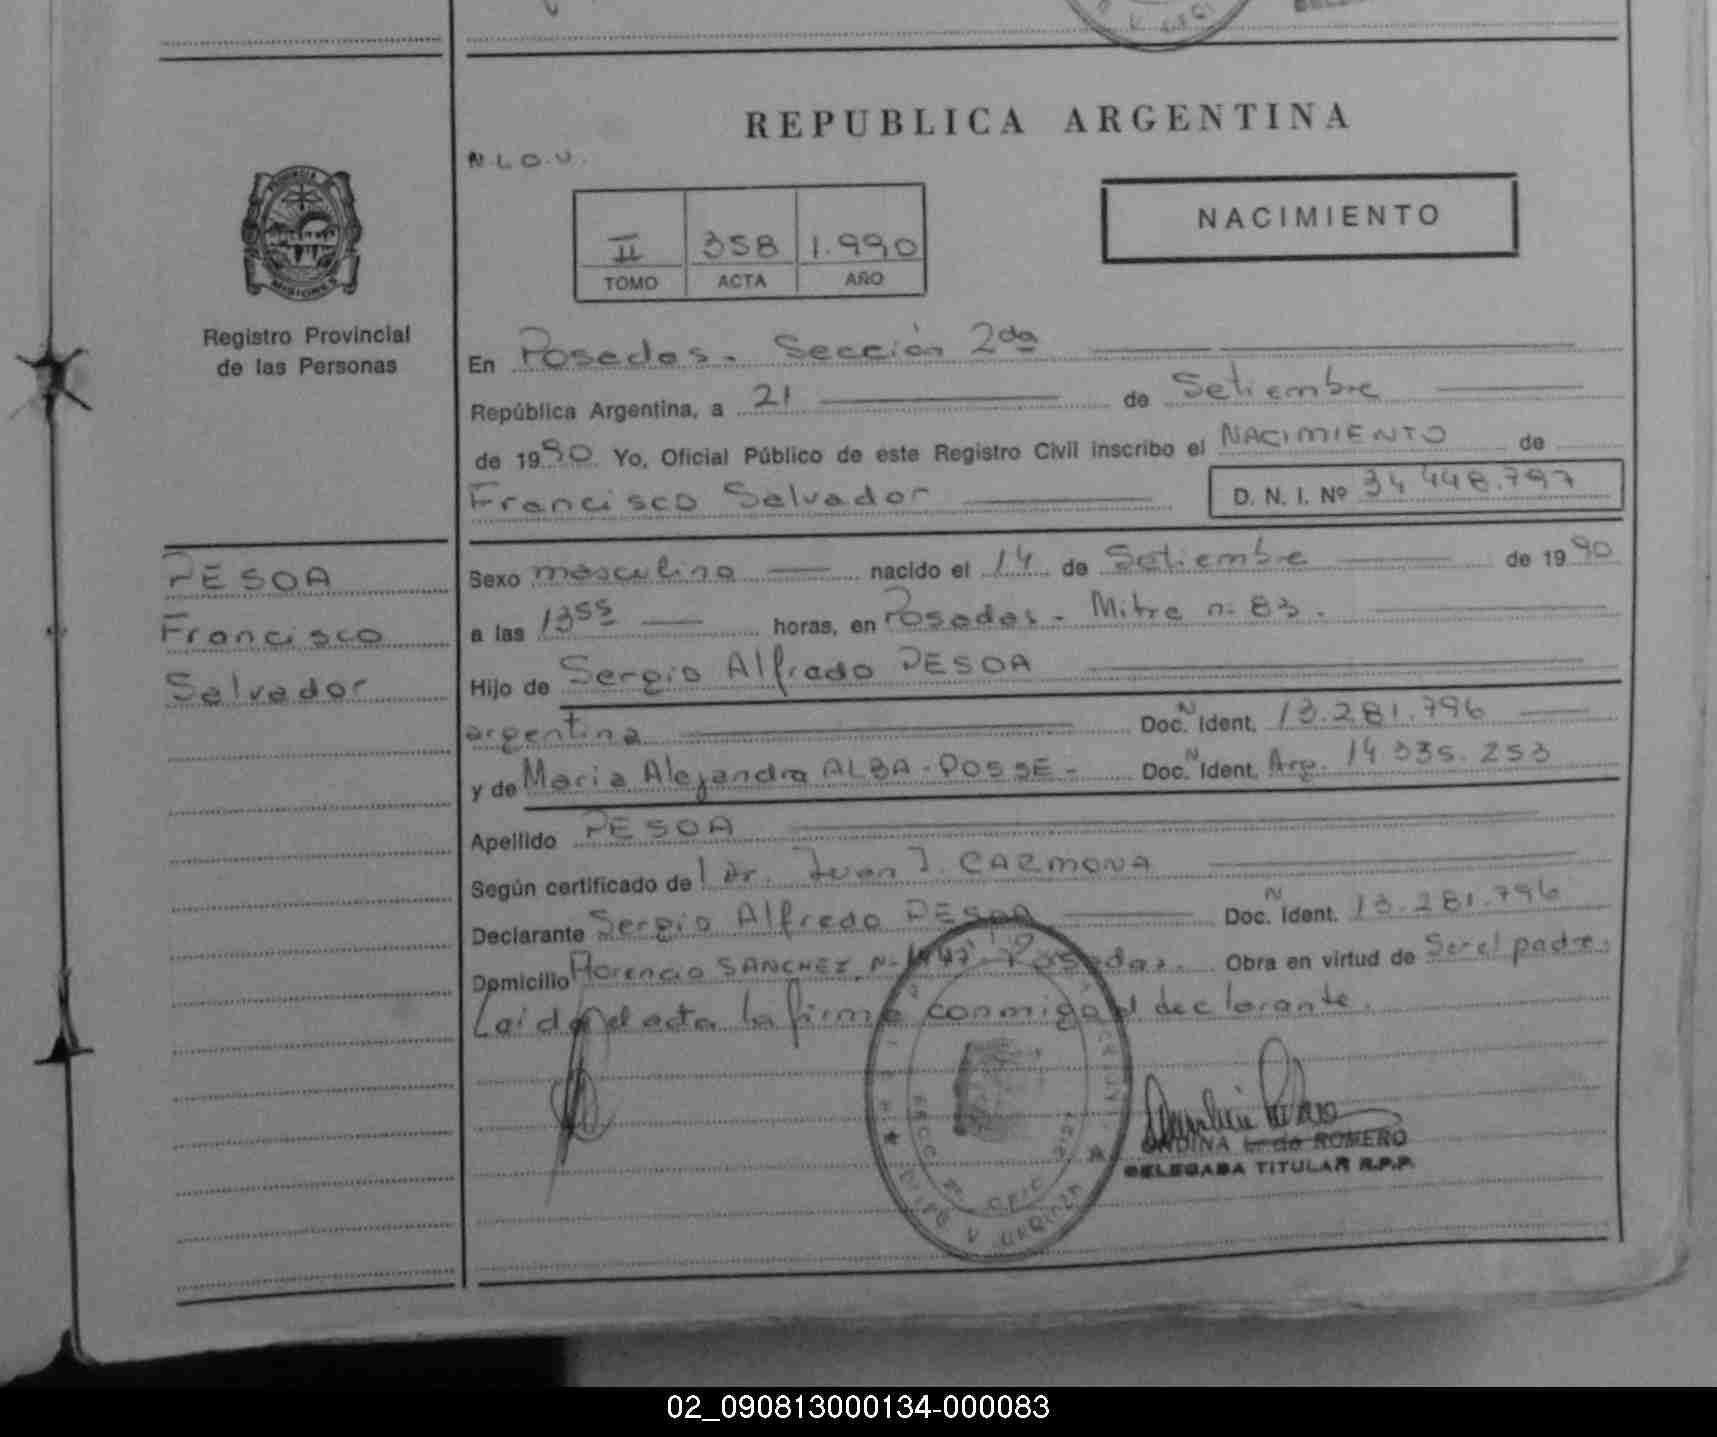 REPUBLICA ARGENTINA
N.L.O.U.
NACIMIENTO
II 358 1.990
TOMO ACTA AÑO
PROVINCIA
MISIONES
Registro Provincial
de las Personas
En Posadas. Sección 2da
República Argentina, a 21 de Setiembre
de 1990 Yo, Oficial Público de este Registro Civil inscribo el NACIMIENTO de
Francisco Salvador D. N. I. Nº 34 448.797
PESOA
Francisco
Salvador
Sexo masculino nacido el 14 de Setiembre de 1990
a las 13 55 horas, en Posadas - Mitre n- 83.
Hijo de Sergio Alfredo PESOA
argentina Doc. N Ident. 13.281.796
y de Maria Alejandra ALBA-POSSE - Doc. N Ident. Arg. 14 335.253
Apellido PESOA
Según certificado del Dr. Juan J. CARMONA
Declarante Sergio Alfredo PESOA Doc. N Ident. 13.281.796
Domicilio Florencio SANCHEZ N- Posadas. Obra en virtud de Ser el padre.
Leida el acta la firma conmigo el declarante.
L. de ROMERO
DELEGADA TITULAR R.P.P.
02_090813000134-000083